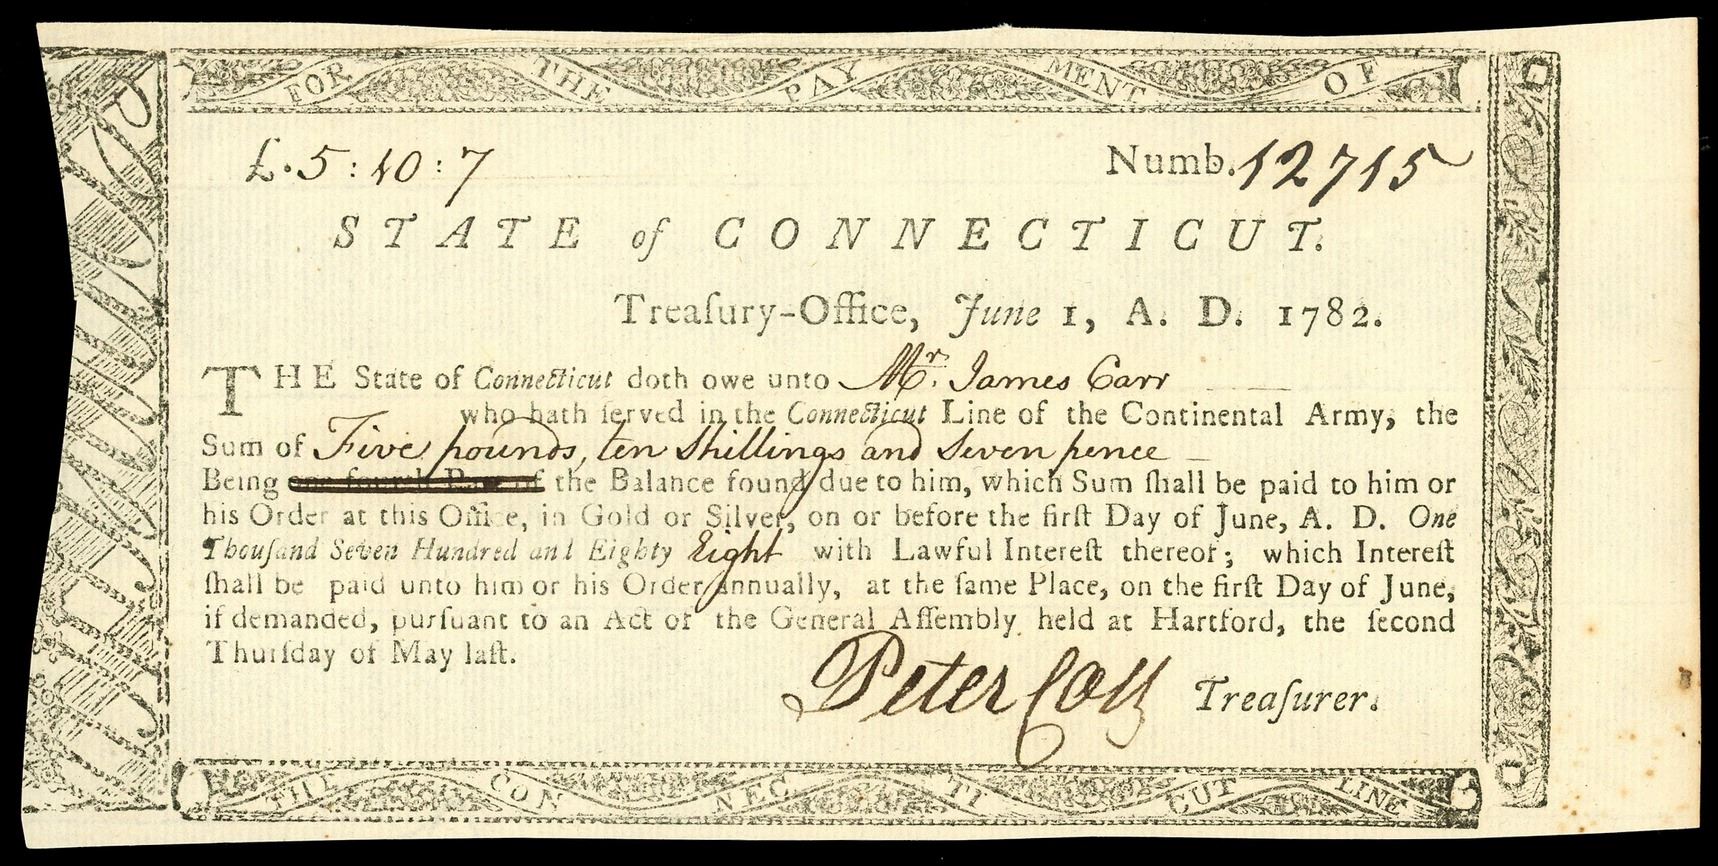 FOR THE PAYMENT OF
£. 5 : 10 : 7 Numb. 12715
STATE of CONNECTICUT.
Treaſury-Office, June 1, A. D. 1782.
THE State of Connecticut doth owe unto Mr. James Carr
who hath ſerved in the Connecticut Line of the Continental Army, the
Sum of Five pounds, ten Shillings and Seven pence
Being one fourth Part of the Balance found due to him, which Sum ſhall be paid to him or
his Order at this Office, in Gold or Silver, on or before the firſt Day of June, A. D. One
Thouſand Seven Hundred and Eighty Eight with Lawful Intereſt thereof; which Intereſt
ſhall be paid unto him or his Order annually, at the ſame Place, on the firſt Day of June,
if demanded, purſuant to an Act of the General Aſſembly held at Hartford, the ſecond
Thurſday of May laſt.
Peter Colt Treaſurer.
THE CONNECTICUT LINE